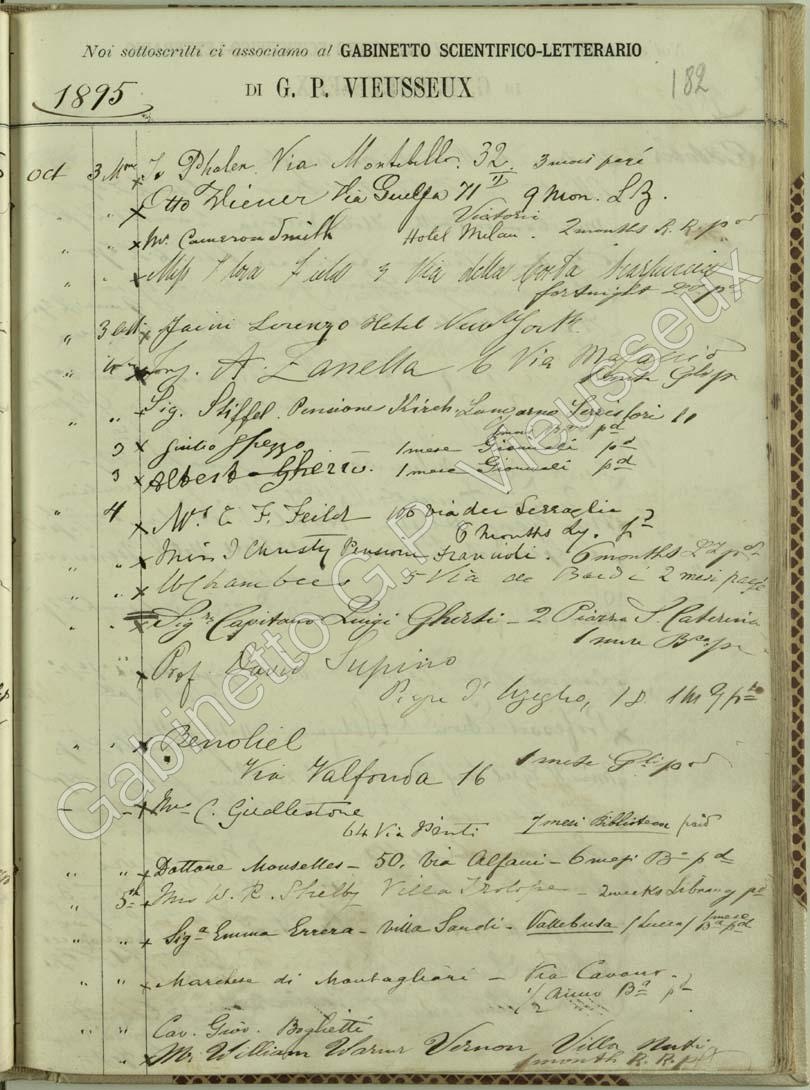 Noi sottoscritti ci associamo al GABINETTO SCIENTIFICO-LETTERARIO
DI G. P. VIEUSSEUX
1895
182
Oct 3 Mme Phalen Via Montebello 32 3 mois payé
Otto Wiener Via Guelfa 71 II 9 Mon. LZ.
Victoria
Mr Cameron Smith Hotel Milan. 2 months R. R. pd
Miss Flora Field 3 Via della Costa
fortnight pd
3 Oct Jaini Lorenzo Hotel New York
A. Zanella 6 Via
Sig. Stiffel Pensione Kirch Lungarno Serristori 11
1 mese Ba pd
3 Giulio Ghezzo 1 mese Giornali pd
3 Alberto Gherzo 1 mese Giornali pd
4 Mrs E. F. Feild 106 via dei Serraglia
6 Months Ly. pd
Miss J Christy Pensione 6 months pd
W Chambers 5 Via de Bardi 2 mesi pagé
Sigr Capitano Luigi Ghersi - 2 Piazza S. Caterina
1 mese pd
Prof David Supino
D'Azeglio, 18. 1 M G pd
Benoliel
Via Valfonda 16 1 mese Gli pd
C. Girdlestone
64 Via Pinti 7 mesi Biblioteca paid
Dottore Mouselles - 50. via Alfani - 6 mesi Ba pd
5th Mrs W. R. Shelby Villa Trolope - 2 weeks Library pd
Siga Emma Errera - villa Sandi - Vallebuia (Lucca) 1 mese Ba pd
Marchese di Montagliari - Via Cavour
1/2 anno Ba pd
Cav. Giov. Boglietti
Mr. William Warner Vernon Villa Nuti
1 month R. R. pd
Gabinetto G.P. Vieusseux